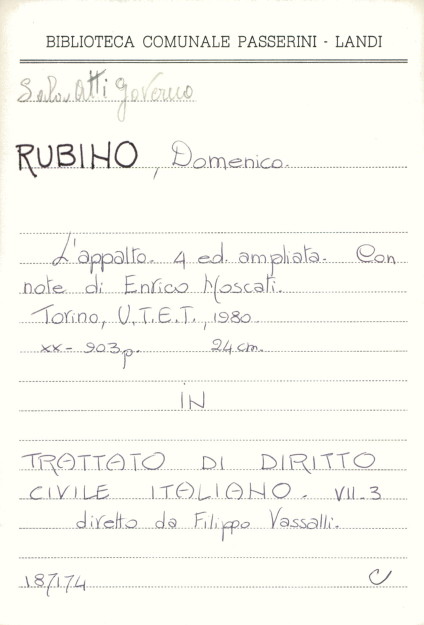 BIBLIOTECA COMUNALE PASSERINI - LANDI
Salo. Atti Governo
RUBINO, Domenico.
L'appalto. 4 ed. ampliata. Con
note di Enrico Moscati.
Torino, U.T.E.T., 1980.
xx - 903p. 24 cm.
IN
TRATTATO DI DIRITTO
CIVILE ITALIANO. VII.3
diretto da Filippo Vassalli.
187174
C